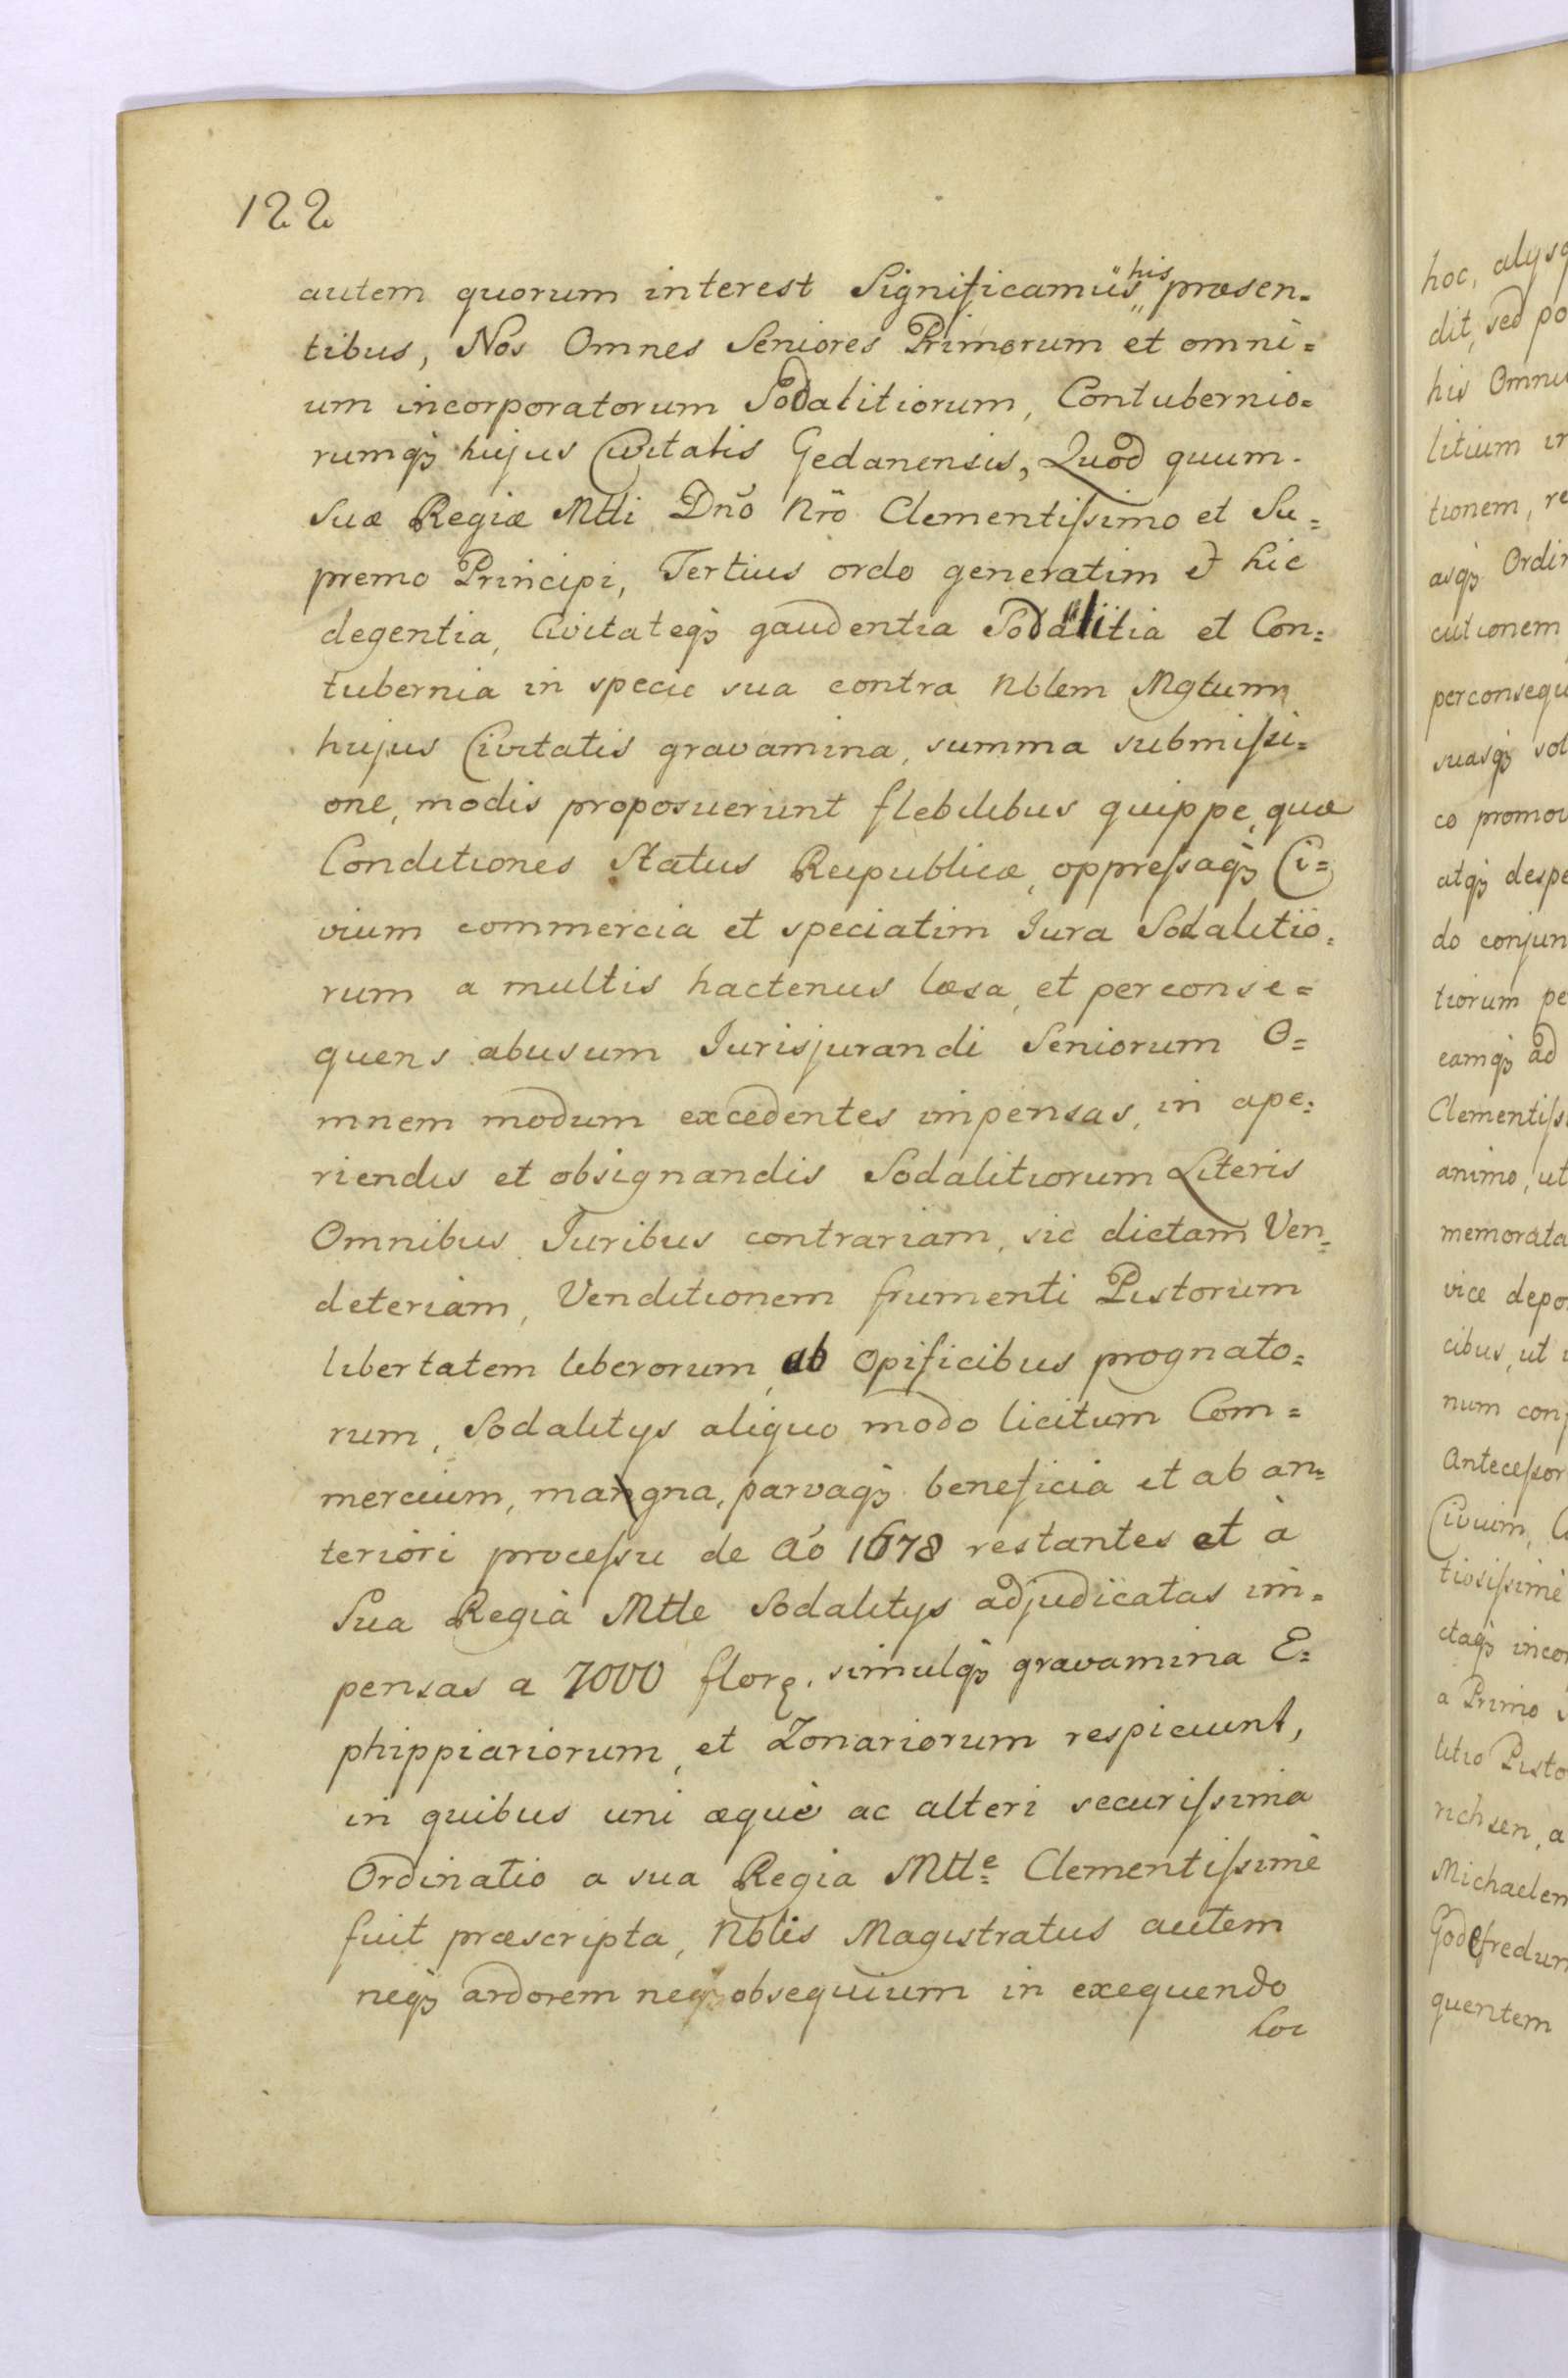 122
autem quorum interest Significamus his præsen-
tibus, Nos Omnes Seniores Primorum et omni=
um incorporatorum Sodalitiorum, Contubernio=
rumq3 hujus Civitatis Gedanensis, Quod quum.
Suæ Regiæ Mtti Dno Nro Clementissimo et Su=
premo Principi, Tertius ordo generatim et hic
degentia, Civitateq3 gaudentia Sodalitia et Con=
tubernia in specie sua contra Nblem Mgtum
hujus Civitatis gravamina, summa submissi=
one, modis proposuerunt flebilibus quippe, quæ
Conditiones Status Reipublicæ, oppressaq3 Ci=
vium commercia et speciatim Jura Sodalitio=
rum a multis hactenus læsa, et perconse=
quens abusum Jurisjurandi Seniorum O=
mnem modum excedentes impensas, in ape=
riendis et obsignandis Sodalitiorum Literis
Omnibus Juribus contrariam, sic dictam Ven=
deteriam, Venditionem frumenti Pistorum
libertatem liberorum, ab Opificibus prognato=
rum, Sodalitys aliquo modo licitum Com=
mercium, mangna, parvaq3 beneficia et ab an=
teriori processu de Aó 1678 restantes et à
Sua Regià Mtte Sodalitys adjudicatas im=
pensas a 7000 flor. simulq3 gravamina E=
phippiariorum, et Zonariorum respiciunt,
in quibus uni æquè ac alteri securissima
Ordinatio a sua Regia Mtte Clementissimè
fuit præscripta, Nblis Magistratus autem
neq3 ardorem neq3 obsequium in exequendo
hoc
hoc, alysq
dit, sed po
his Omni
litium in
tionem, re
asq3 Ordin
cutionem
perconsequ
suasq3 sol
co promov
atq3 despe
do conjun
tiorum pe
eamq3 ad
Clementiss
animo, ut
memorata
vice depo
cibus, ut
num conf
Antecessor
Civium, C
tiosissimè
ctaq3 incor
a Primo
litio Pisto
richsen, a
Michaelem
Godefredum
quentem